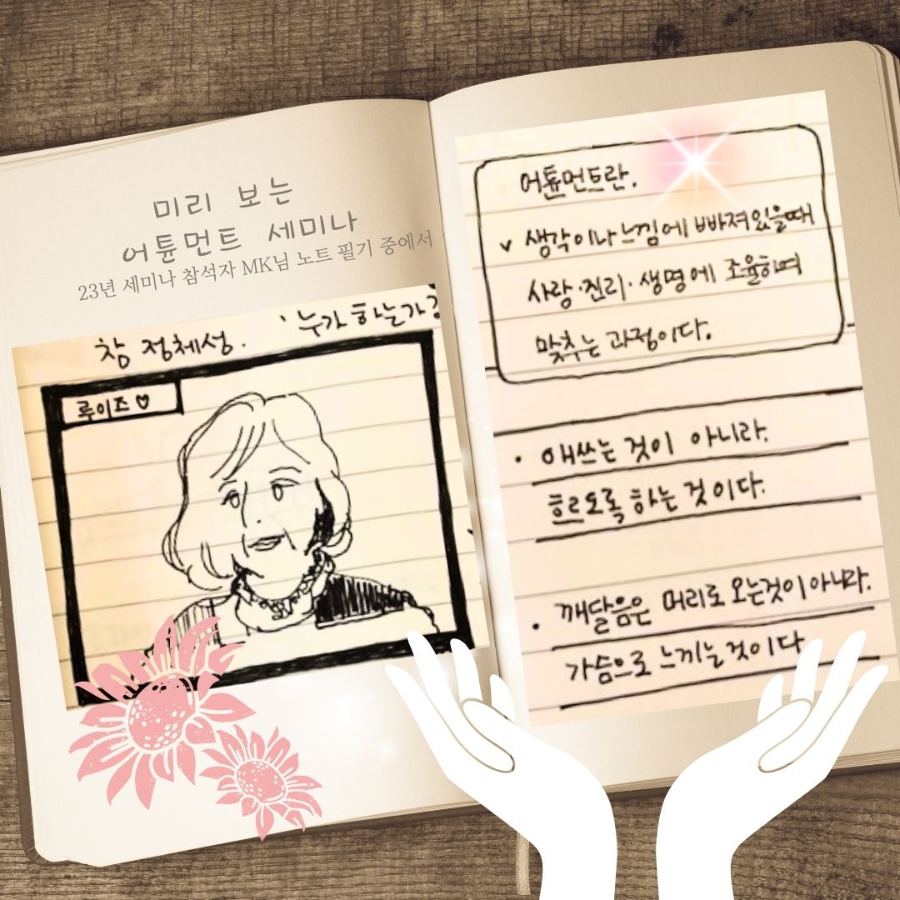 미리 보는
어튠먼트 세미나
23년 세미나 참석자 MK님 노트 필기 중에서
참 정체성. '누가 하는가?
루이즈♡
어튠먼트란.
v 생각이나 느낌에 빠져있을때
사랑·진리·생명에 조율하며
맞추는 과정이다.
• 애쓰는 것이 아니라.
흐르도록 하는 것이다.
• 깨달음은 머리로 오는것이 아니라.
가슴으로 느끼는것이다